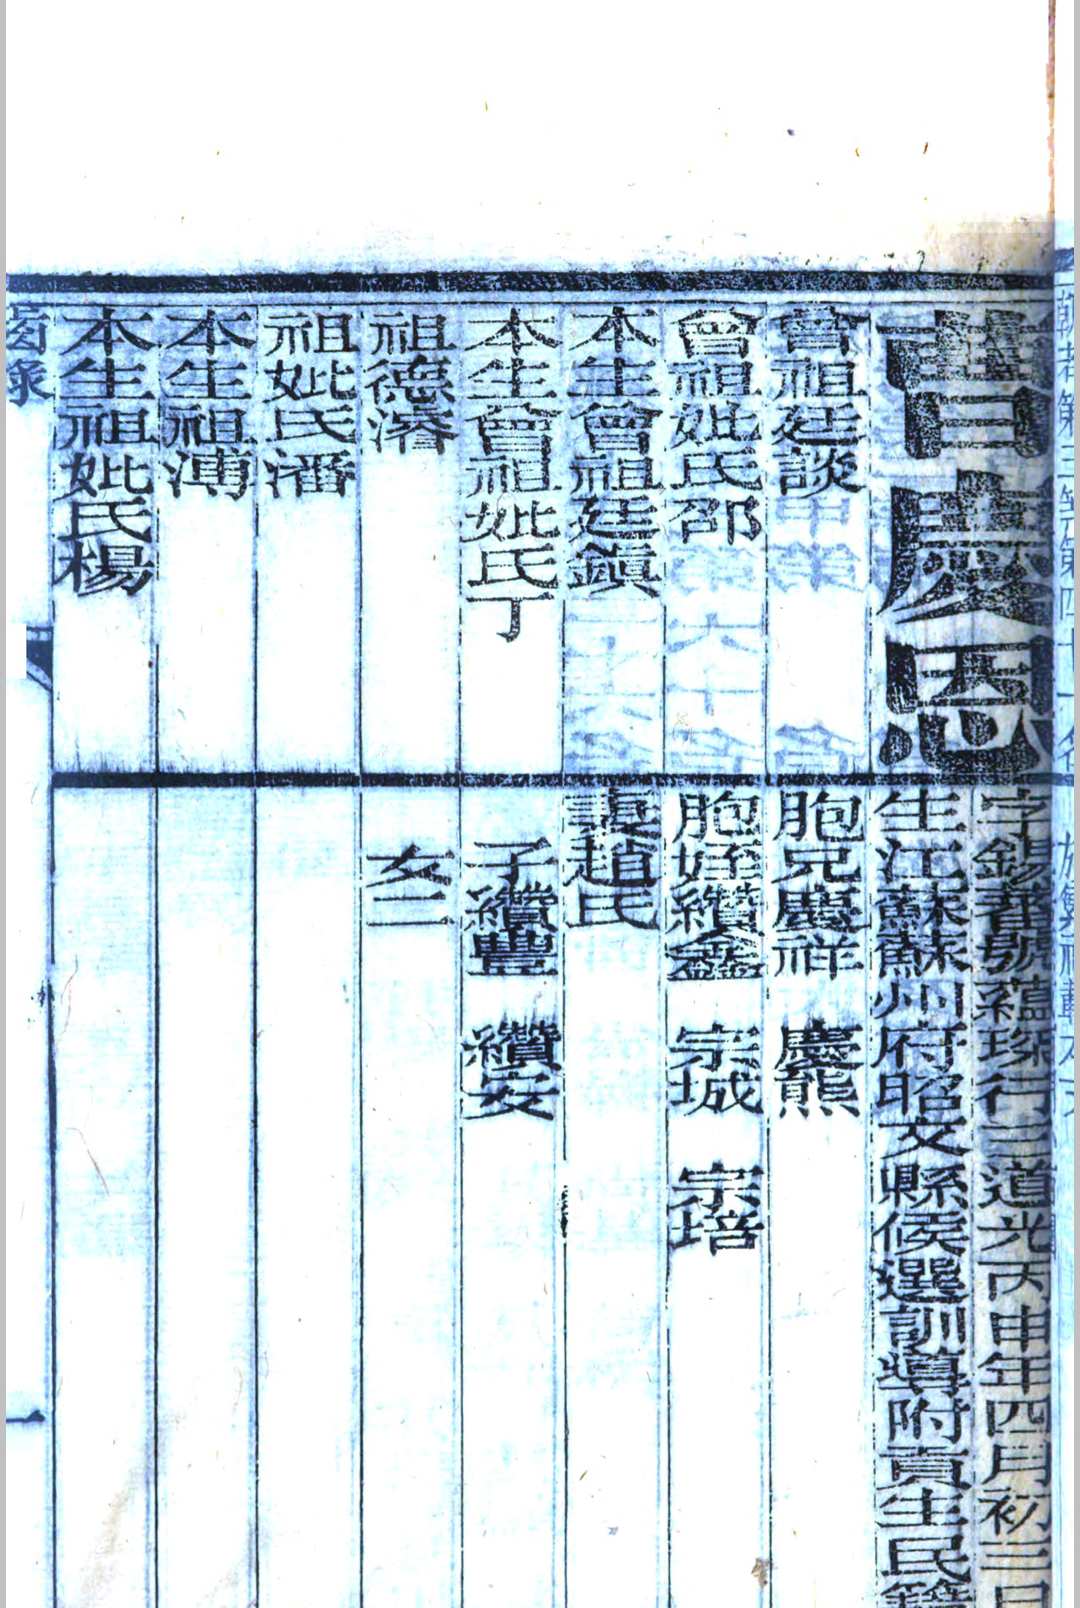 曹慶恩
字錫蕃號蘊琛行三道光丙申年四月初三日
生江蘇蘇州府昭文縣候選訓導附貢生民籍
曾祖廷談
曾祖妣氏邵
本生曾祖廷鎭
本生曾祖妣氏丁
祖德濬
祖妣氏潘
本生祖溥
本生祖妣氏楊
胞兄慶祥 慶熊
胞姪纘鑫 宗城 宗培
妻趙氏
子纘豐 纘安
女二
齒錄
一